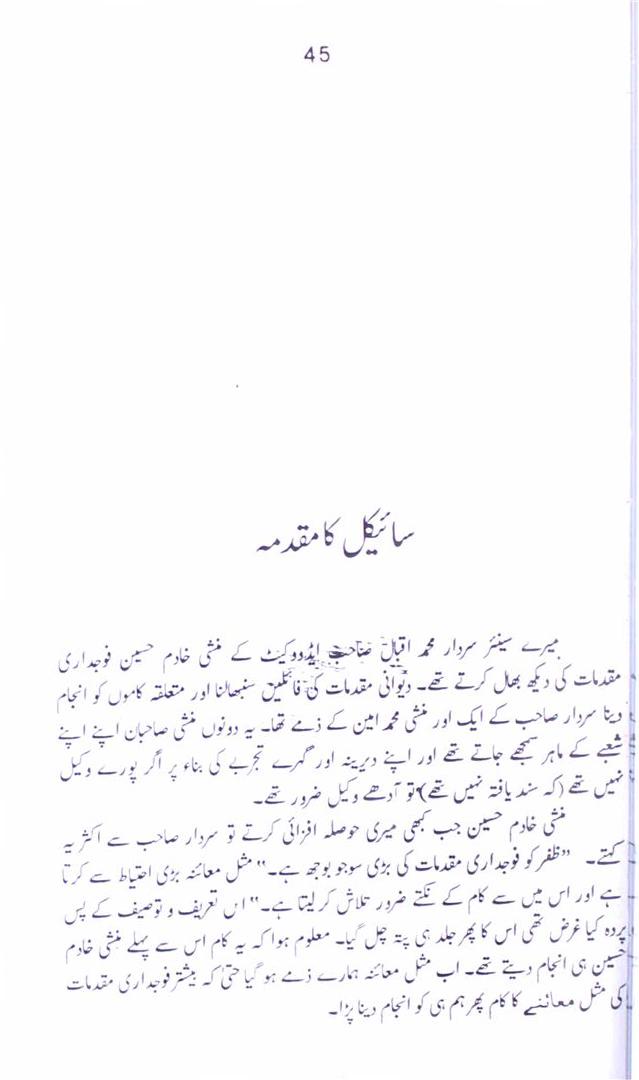 45
سائیکل کا مقدمہ
میرے سینئر سردار محمد اقبال صاحب ایڈووکیٹ کے منشی خادم حسین فوجداری
مقدمات کی دیکھ بھال کرتے تھے۔ دیوانی مقدمات کی فائلیں سنبھالنا اور متعلقہ کاموں کو انجام
دینا سردار صاحب کے ایک اور منشی محمد امین کے ذمے تھا۔ یہ دونوں منشی صاحبان اپنے اپنے
شعبے کے ماہر سمجھے جاتے تھے اور اپنے دیرینہ اور گہرے تجربے کی بناء پر اگر پورے وکیل
نہیں تھے (کہ سند یافتہ نہیں تھے) تو آدھے وکیل ضرور تھے۔
منشی خادم حسین جب کبھی میری حوصلہ افزائی کرتے تو سردار صاحب سے اکثر یہ
کہتے۔ ”ظفر کو فوجداری مقدمات کی بڑی سوجو بوجھ ہے۔“ مثل معائنہ بڑی احتیاط سے کرتا
ہے اور اس میں سے کام کے نکتے ضرور تلاش کر لیتا ہے۔“ اس تعریف و توصیف کے پس
پردہ کیا غرض تھی اس کا پھر جلد ہی پتہ چل گیا۔ معلوم ہوا کہ یہ کام اس سے پہلے منشی خادم
حسین ہی انجام دیتے تھے۔ اب مثل معائنہ ہمارے ذمے ہو گیا حتیٰ کہ بیشتر فوجداری مقدمات
کی مثل معائنے کا کام پھر ہم ہی کو انجام دینا پڑا۔